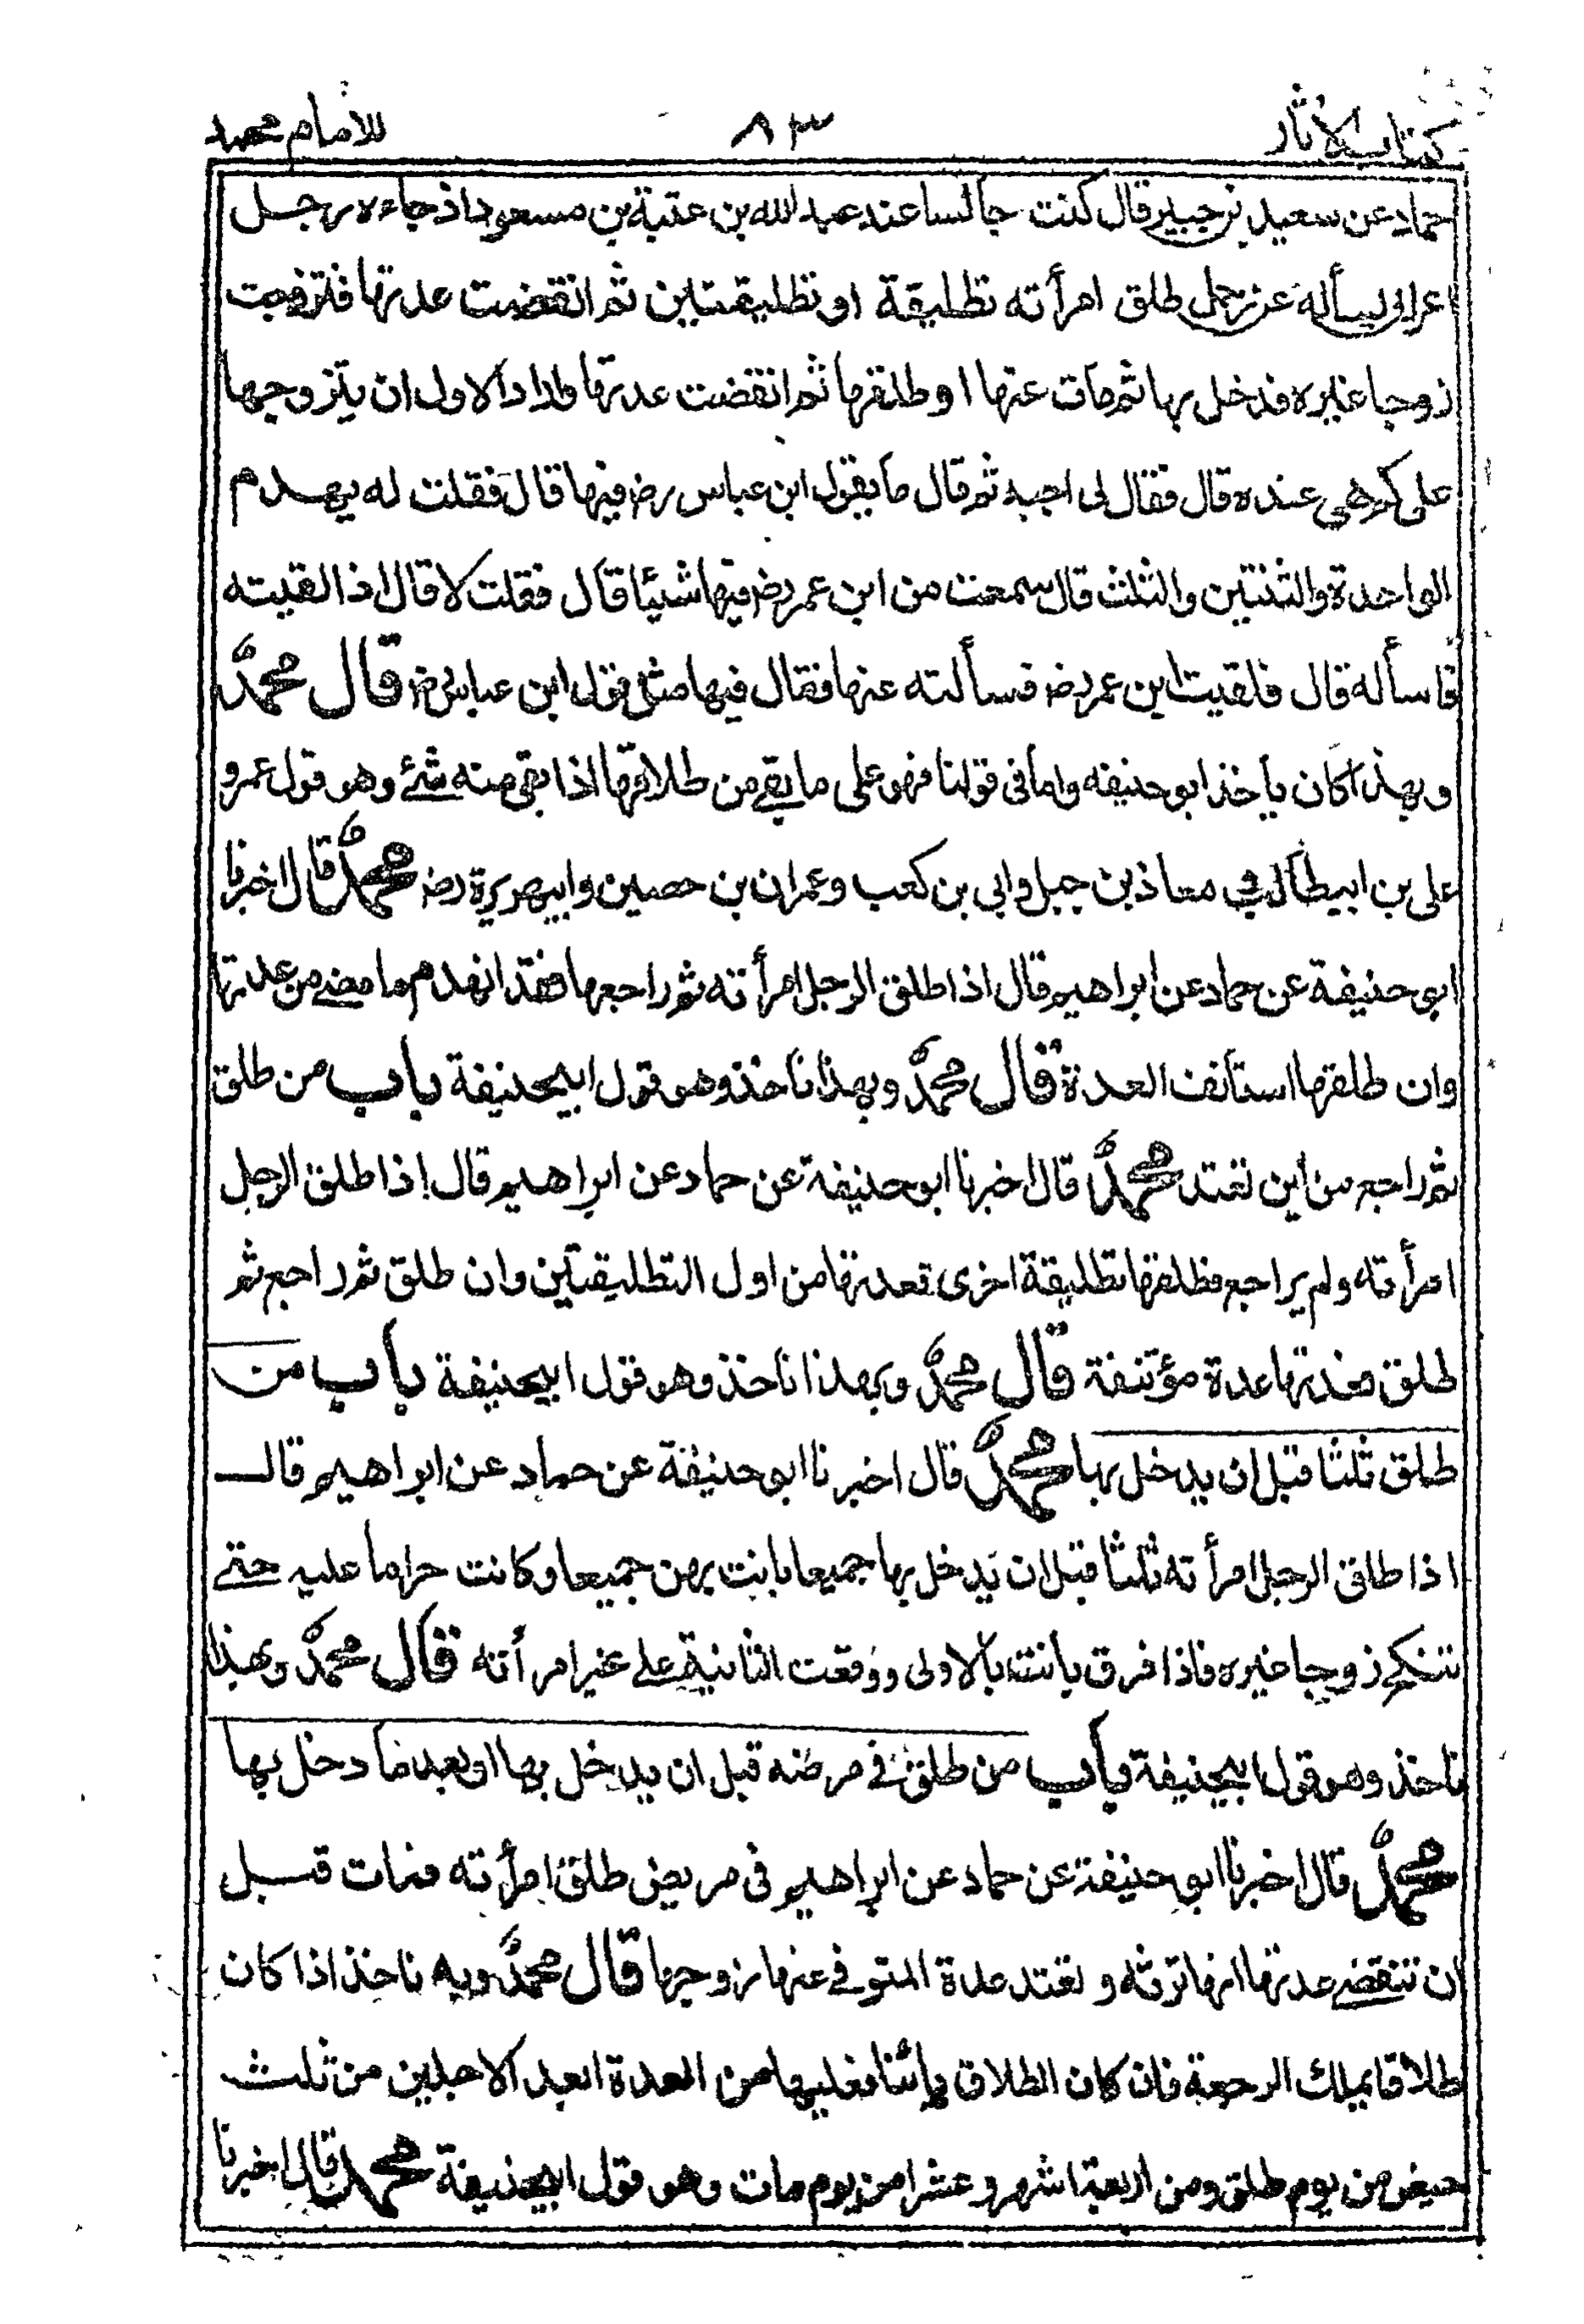 كتاب الاثار ٨٣ للامام محمد
حماد عن سعيد بن جبير قال كنت جالسا عند عبد الله بن عتبة بن مسعود اذ جاءه رجل
اعرابي يسأله عن رجل طلق امرأته تطليقة او تطليقتين ثم انقضت عدتها فتزوجت
زوجا غيره فدخل بها ثم مات عنها او طلقها ثم انقضت عدتها واراد الاول ان يتزوجها
على كم هي عنده قال فقال لى اجبه ثم قال ما يقول ابن عباس رض فيها قال فقلت له يهدم
الواحدة والثنتين والثلث قال سمعت من ابن عمر رض فيها شيئا قال فقلت لا قال اذا لقيته
فاسأله قال فلقيت ابن عمر رض فسألته عنها فقال فيها مثل قول ابن عباس رض قال محمد
وبهذا كان يأخذ ابو حنيفه واما فى قولنا فهو على ما بقي من طلاقها اذا بقى منه شئ وهو قول عمر و
على بن ابيطالب و معاذ بن جبل وابى بن كعب وعمران بن حصين وابيهريرة رض محمد قال اخبرنا
ابو حنيفة عن حماد عن ابراهيم قال اذا طلق الرجل امرأته ثم راجعها فقد انهدم ما مضى من عدتها
وان طلقها استأنف العدة قال محمد وبهذا ناخذ وهو قول ابيحنيفة باب من طلق
ثم راجع من اين تعتد محمد قال اخبرنا ابو حنيفة عن حماد عن ابراهيم قال اذا طلق الرجل
امرأته ولم يراجع فطلقها تطليقة اخرى فعدتها من اول التطليقتين وان طلق ثم راجع ثم
طلق فعدتها عدة مؤتنفة قال محمد وبهذا ناخذ وهو قول ابيحنيفة باب من
طلق ثلثا قبل ان يدخل بها محمد قال اخبرنا ابو حنيفة عن حماد عن ابراهيم قال
اذا طلق الرجل امرأته ثلثا قبل ان يدخل بها جميعا بانت بهن جميعا وكانت حراما عليه حتى
تنكح زوجا غيره فاذا فرق بانت بالاولى ووقعت الثانية على غير امرأته قال محمد وبهذا
ناخذ وهو قول ابيحنيفة باب من طلق في مرضه قبل ان يدخل بها او بعد ما دخل بها
محمد قال اخبرنا ابو حنيفة عن حماد عن ابراهيم فى مريض طلق امرأته فمات قبل
ان تنقضي عدتها انها ترثه و تعتد عدة المتوفى عنها زوجها قال محمد وبه ناخذ اذا كان
طلاقا يملك الرجعة فان كان الطلاق بائنا فعليها من العدة ابعد الاجلين من ثلث
حيض من يوم طلق ومن اربعة اشهر و عشرا من يوم مات وهو قول ابيحنيفة محمد قال اخبرنا